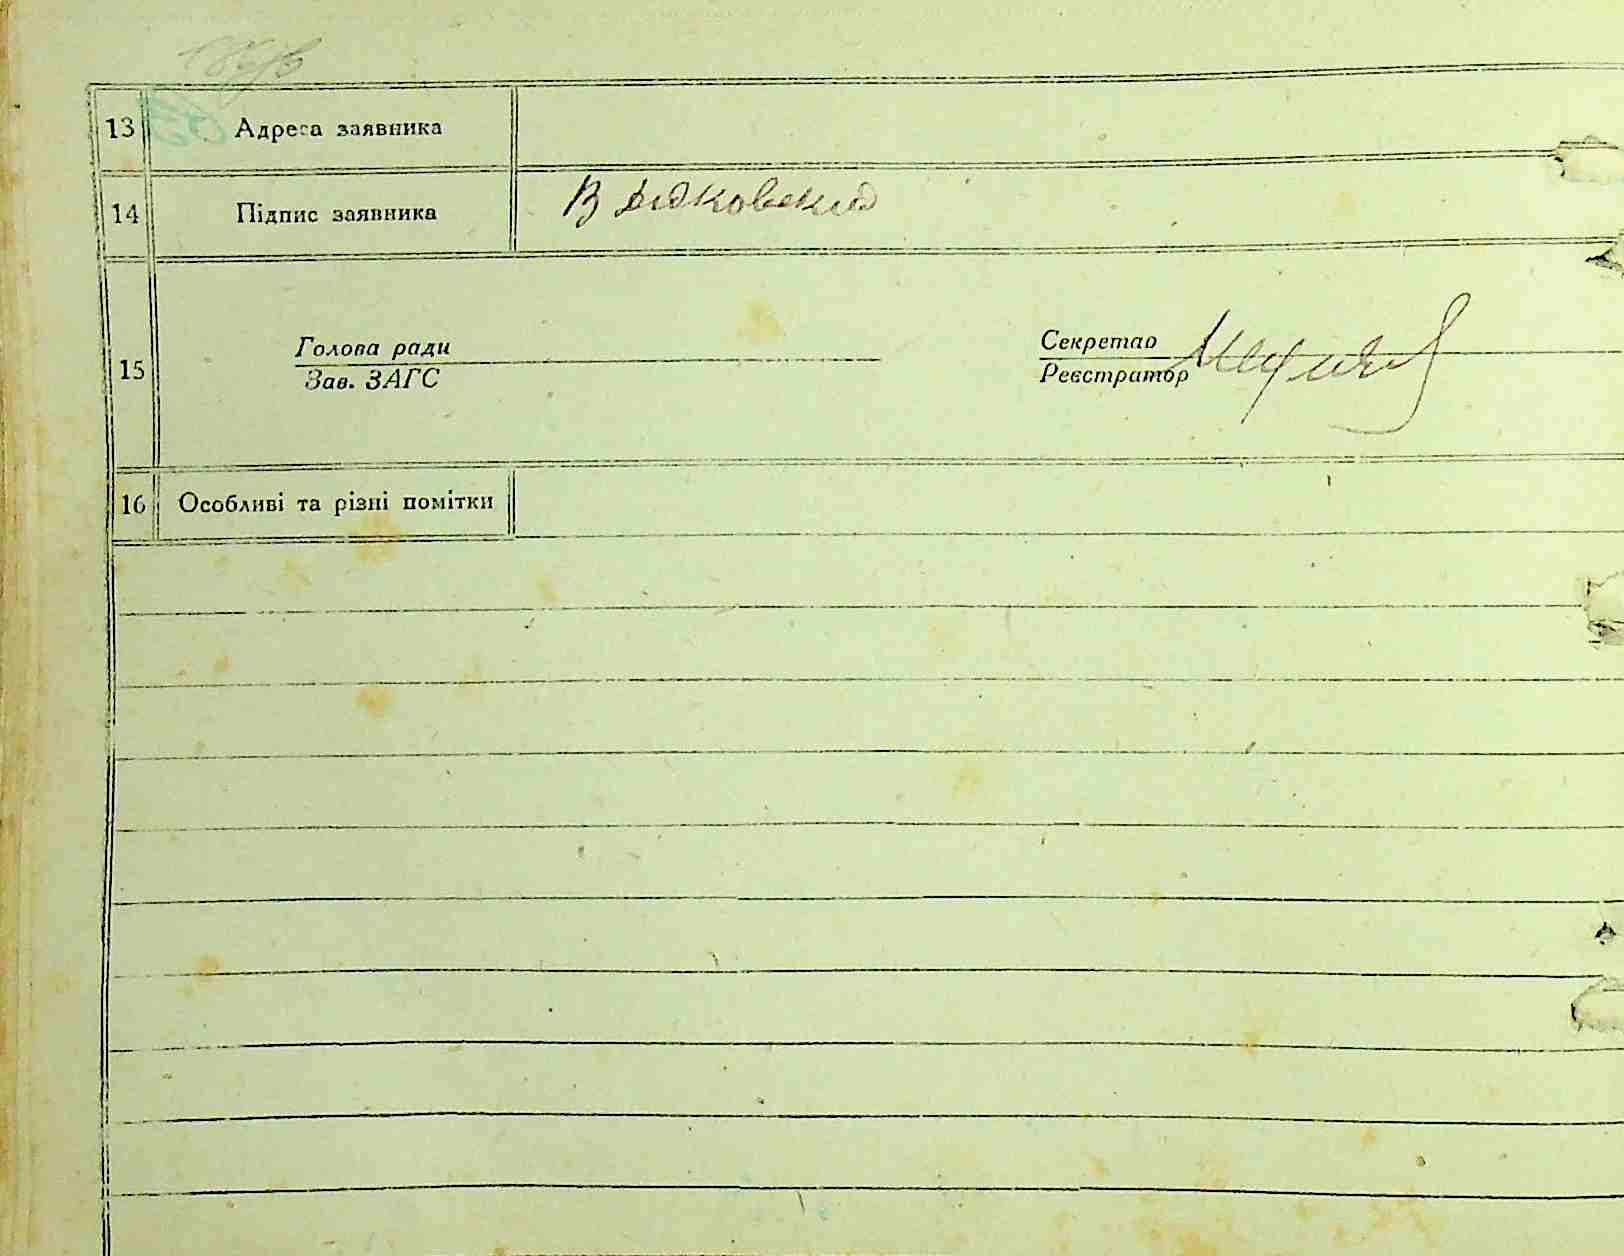 13 Адреса заявника
14 Підпис заявника
15 Голова ради Секретар
Зав. ЗАГС Реєстратор
16 Особливі та різні помітки